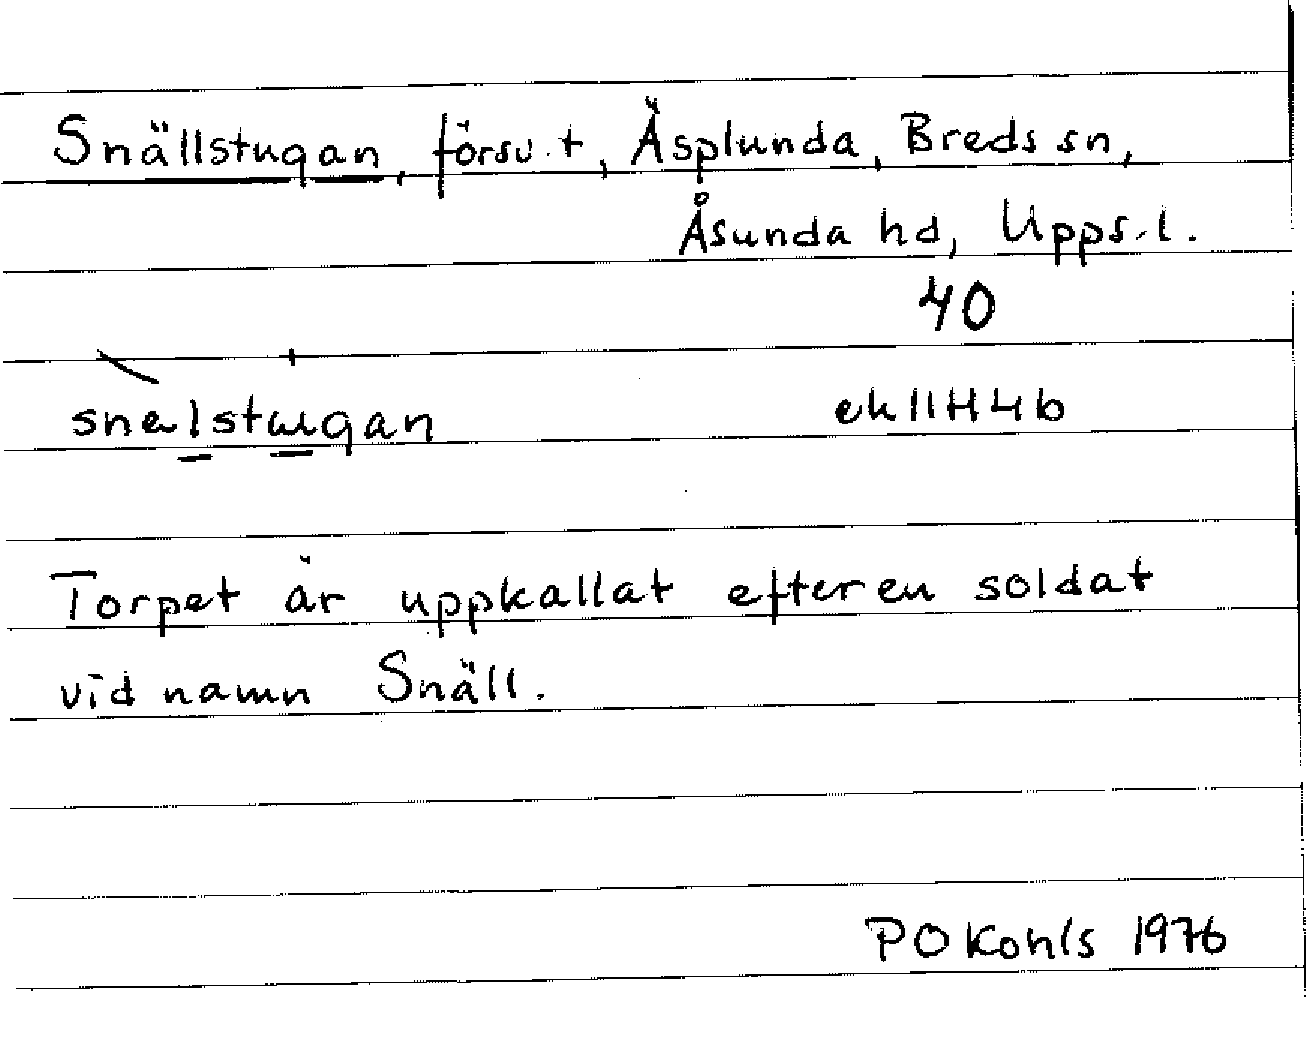 Snällstugan, försv. t, Äsplunda, Breds sn,
Åsunda hd, Upps. l.
40
snalstɯgan ek 11H4b
Torpet är uppkallat efter en soldat
vid namn Snäll.
P O Kohls 1976